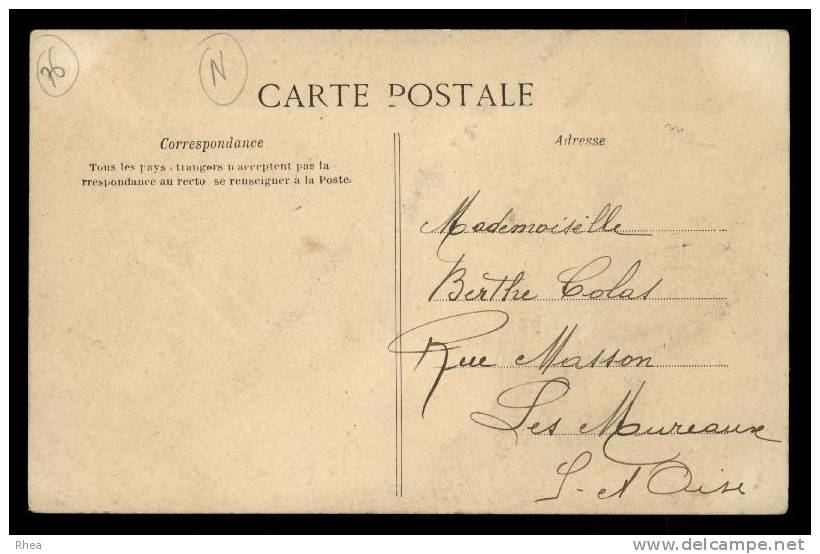 76
N
CARTE POSTALE
Correspondance
Tous les pays étrangers n'acceptent pas la
rrespondance au recto se renseigner à la Poste.
Adresse
Mademoiselle
Berthe Colas
Rue Masson
Les Mureaux
S-et Oise
Rhea
www.delcampe.net